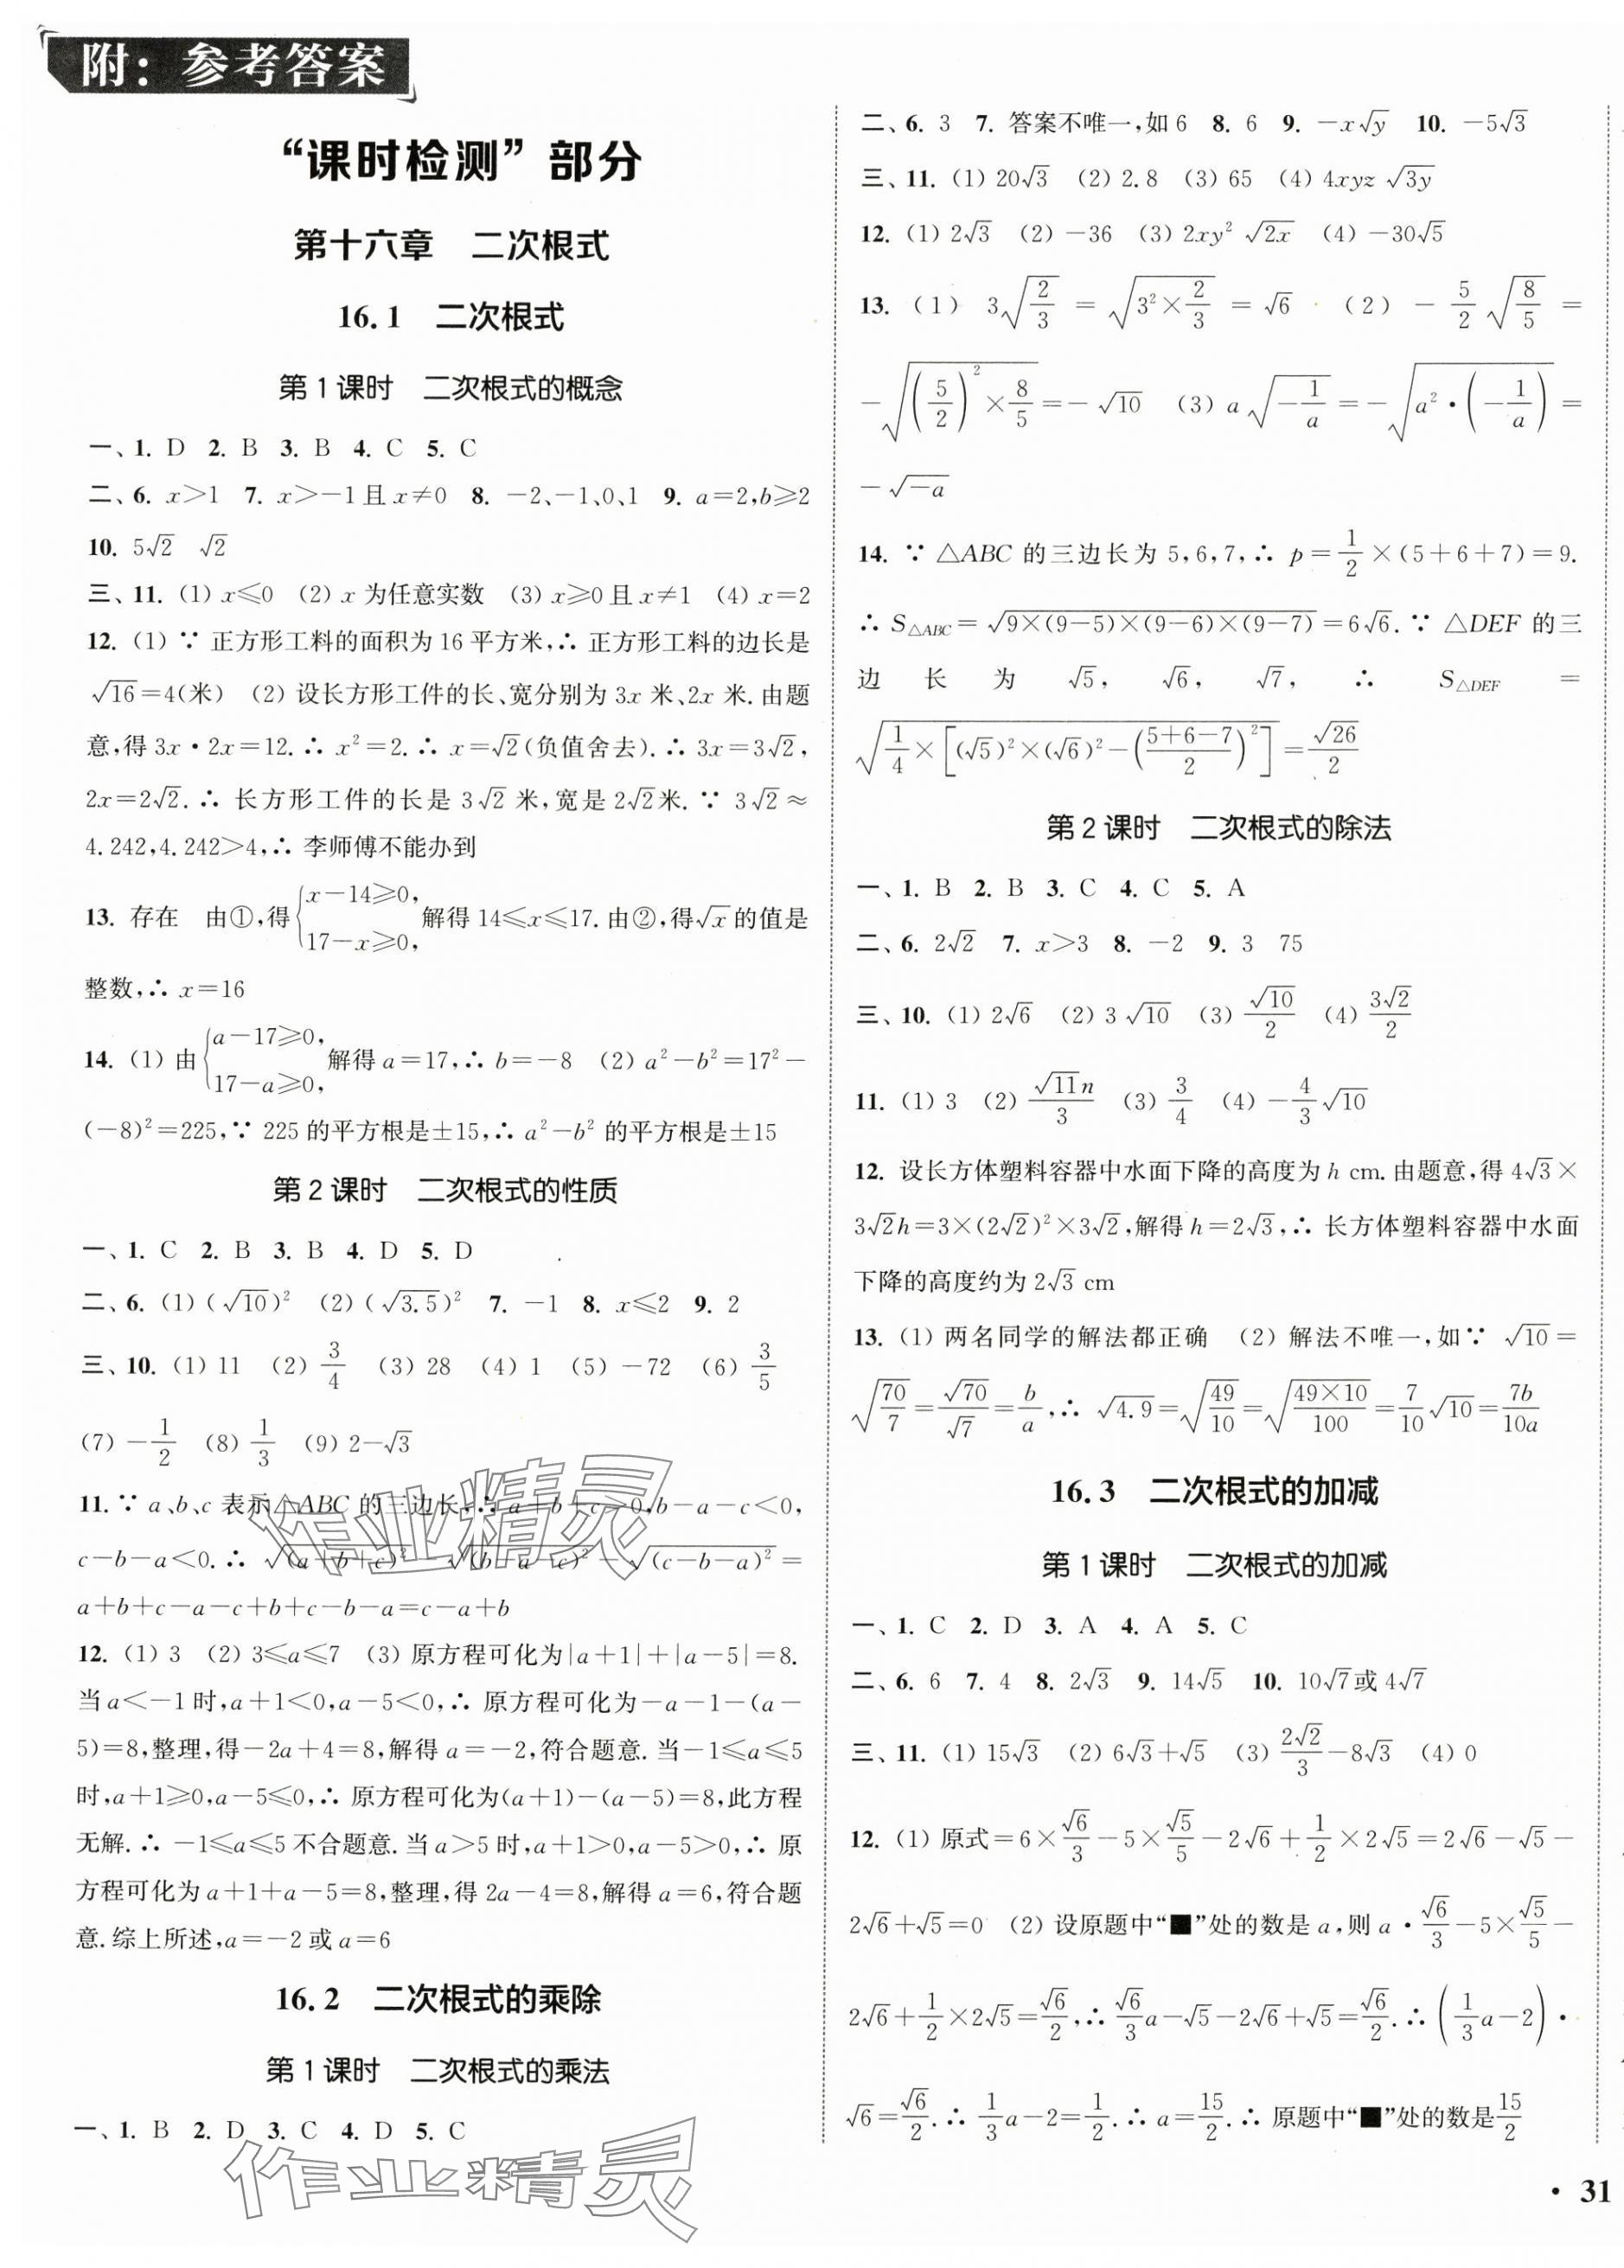 附：参考答案
“课时检测”部分
第十六章　二次根式
16.1　二次根式
第1课时　二次根式的概念
一、1. D 2. B 3. B 4. C 5. C
二、6. x>1 7. x>-1且x≠0 8. -2、-1、0、1 9. a=2,b≥2
10. 5√2　√2
三、11. (1) x≤0 (2) x为任意实数 (3) x≥0且x≠1 (4) x=2
12. (1) ∵ 正方形工料的面积为16平方米,∴ 正方形工料的边长是
√16=4(米) (2) 设长方形工件的长、宽分别为3x米、2x米.由题
意,得3x·2x=12.∴ x²=2.∴ x=√2(负值舍去).∴ 3x=3√2,
2x=2√2.∴ 长方形工件的长是3√2米,宽是2√2米.∵ 3√2≈
4.242,4.242>4,∴ 李师傅不能办到
13. 存在　由①,得{x-14≥0, 17-x≥0, 解得14≤x≤17.由②,得√x的值是
整数,∴ x=16
14. (1) 由{a-17≥0, 17-a≥0, 解得a=17,∴ b=-8 (2) a²-b²=17²-
(-8)²=225,∵ 225的平方根是±15,∴ a²-b²的平方根是±15
第2课时　二次根式的性质
一、1. C 2. B 3. B 4. D 5. D
二、6. (1) (√10)² (2) (√3.5)² 7. -1 8. x≤2 9. 2
三、10. (1) 11 (2) 3/4 (3) 28 (4) 1 (5) -72 (6) 3/5
(7) -1/2 (8) 1/3 (9) 2-√3
11. ∵ a、b、c表示△ABC的三边长,∴ a+b+c>0,b-a-c<0,
c-b-a<0.∴ √(a+b+c)² √(b-a-c)² - √(c-b-a)² =
a+b+c-a-c+b+c-b-a=c-a+b
12. (1) 3 (2) 3≤a≤7 (3) 原方程可化为|a+1|+|a-5|=8.
当a<-1时,a+1<0,a-5<0,∴ 原方程可化为-a-1-(a-
5)=8,整理,得-2a+4=8,解得a=-2,符合题意.当-1≤a≤5
时,a+1≥0,a-5≤0,∴ 原方程可化为(a+1)-(a-5)=8,此方程
无解.∴ -1≤a≤5不合题意.当a>5时,a+1>0,a-5>0,∴ 原
方程可化为a+1+a-5=8,整理,得2a-4=8,解得a=6,符合题
意.综上所述,a=-2或a=6
16.2　二次根式的乘除
第1课时　二次根式的乘法
一、1. B 2. D 3. C 4. D 5. C
二、6. 3 7. 答案不唯一,如6 8. 6 9. -x√y 10. -5√3
三、11. (1) 20√3 (2) 2.8 (3) 65 (4) 4xyz√(3y)
12. (1) 2√3 (2) -36 (3) 2xy²√(2x) (4) -30√5
13. (1) 3√(2/3) = √(3²×2/3) = √6 (2) -5/2√(8/5) =
-√((5/2)²×8/5)=-√10 (3) a√(-1/a)=-√(a²·(-1/a))=
-√(-a)
14. ∵ △ABC的三边长为5,6,7,∴ p=1/2×(5+6+7)=9.
∴ S△ABC=√(9×(9-5)×(9-6)×(9-7))=6√6.∵ △DEF的三
边长为√5,√6,√7,∴ S△DEF =
√(1/4×[(√5)²×(√6)²-((5+6-7)/2)²])=√26/2
第2课时　二次根式的除法
一、1. B 2. B 3. C 4. C 5. A
二、6. 2√2 7. x>3 8. -2 9. 3　75
三、10. (1) 2√6 (2) 3√10 (3) √10/2 (4) 3√2/2
11. (1) 3 (2) √11n/3 (3) 3/4 (4) -4/3√10
12. 设长方体塑料容器中水面下降的高度为h cm.由题意,得4√3×
3√2h=3×(2√2)²×3√2,解得h=2√3,∴ 长方体塑料容器中水面
下降的高度约为2√3 cm
13. (1) 两名同学的解法都正确 (2) 解法不唯一,如∵ √10=
√(70/7)=√70/√7=b/a,∴ √4.9=√(49/10)=√(49×10/100)=7/10√10=7b/10a
16.3　二次根式的加减
第1课时　二次根式的加减
一、1. C 2. D 3. A 4. A 5. C
二、6. 6 7. 4 8. 2√3 9. 14√5 10. 10√7或4√7
三、11. (1) 15√3 (2) 6√3+√5 (3) 2√2/3-8√3 (4) 0
12. (1) 原式=6×√6/3-5×√5/5-2√6+1/2×2√5=2√6-√5-
2√6+√5=0 (2) 设原题中“■”处的数是a,则a·√6/3-5×√5/5-
2√6+1/2×2√5=√6/2,∴ √6/3a-√5-2√6+√5=√6/2.∴ (1/3a-2)·
√6=√6/2.∴ 1/3a-2=1/2.∴ a=15/2.∴ 原题中“■”处的数是15/2
作业精灵
作业精灵
·31